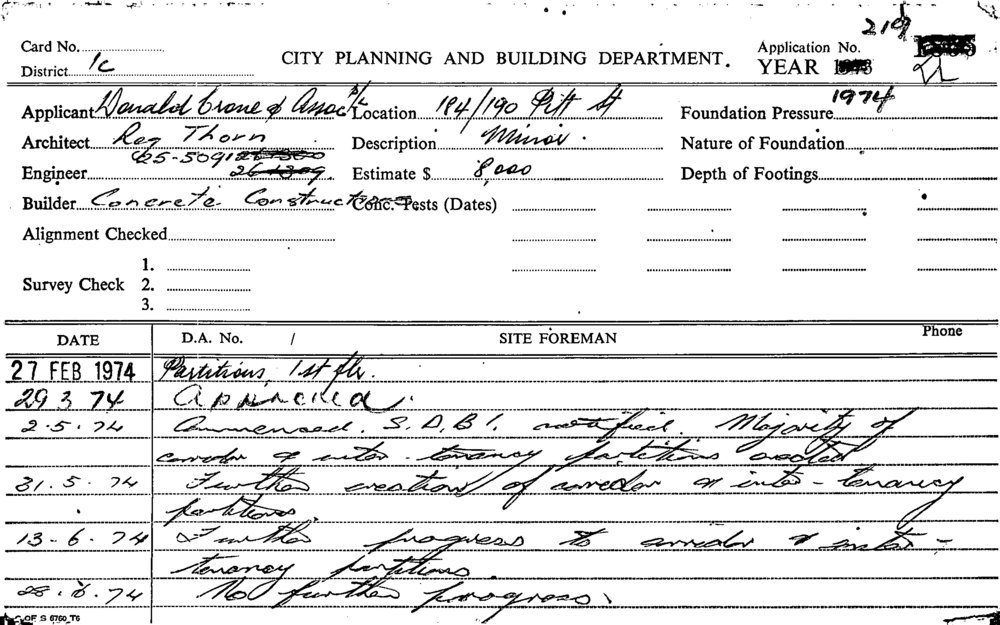 219
Card No. Application No.
District 1c CITY PLANNING AND BUILDING DEPARTMENT. YEAR 1973
1974
Applicant Donald Crone & Assoc P/L Location 184/190 Pitt St Foundation Pressure
Architect Reg Thorn Description Minor. Nature of Foundation
25-5091
Engineer Estimate $ 8,000 Depth of Footings
Builder Concrete Constructions Conc. Tests (Dates)
Alignment Checked
1.
Survey Check 2.
3.
DATE D.A. No. / SITE FOREMAN Phone
27 FEB 1974 Partitions, 1st flr.
29 3 74 Approved.
2.5.74 Commenced. S.D.B.I. notified. Majority of
corridor & inter-tenancy partitions erected
31.5.74 Further erection of corridor & inter-tenancy
partitions.
13-6.74 Further progress to corridor & inter-
tenancy partitions.
28.6.74 No further progress.
OF S 6760 T6